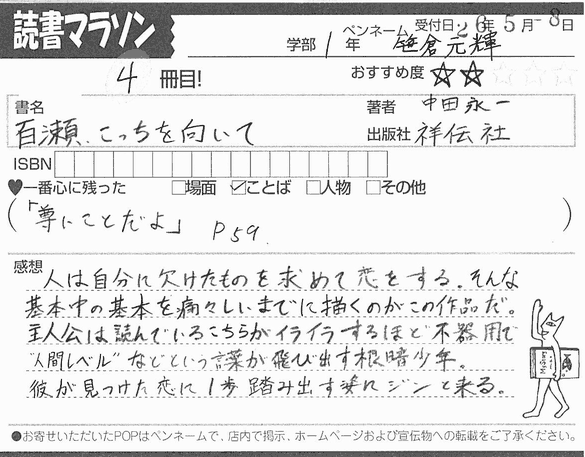 読書マラソン
受付日:26年5月-8日
学部 1年 ペンネーム 笹倉元輝
4冊目!
おすすめ度 ☆☆
書名 百瀬、こっちを向いて
著者 中田永一
出版社 祥伝社
ISBN
♥一番心に残った □場面 ☑ことば □人物 □その他
(「尊いことだよ」 P59.)
感想
人は自分に欠けたものを求めて恋をする。そんな
基本中の基本を痛々しいまでに描くのがこの作品だ。
主人公は読んでいるこちらがイライラするほど不器用で
"人間レベル"などという言葉が飛び出す根暗少年。
彼が見つけた恋に1歩踏み出す姿にジンと来る。
●お寄せいただいたPOPはペンネームで、店内で掲示、ホームページおよび宣伝物への転載をご了承ください。